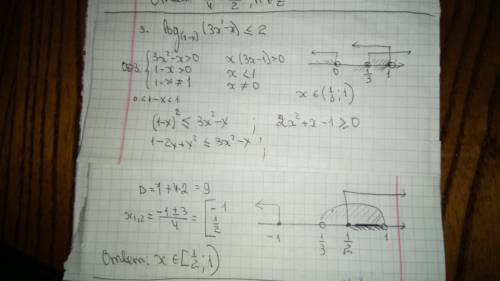 3. log₍₁₋ₓ₎ (3x²-x) ≤ 2
ОДЗ: { 3x²-x>0   x(3x-1)>0
1-x>0   x<1
1-x≠1   x≠0
0   1/3   1
0<1-x<1   x∈(1/3;1)
(1-x)² ≤ 3x²-x ;   2x²+x-1≥0
1-2x+x² ≤ 3x²-x ;
D=1+4·2=9
x₁,₂ = (-1±3)/4 = [ -1   1/2
-1   1/3   1/2   1
Ответ: x∈[1/2;1)